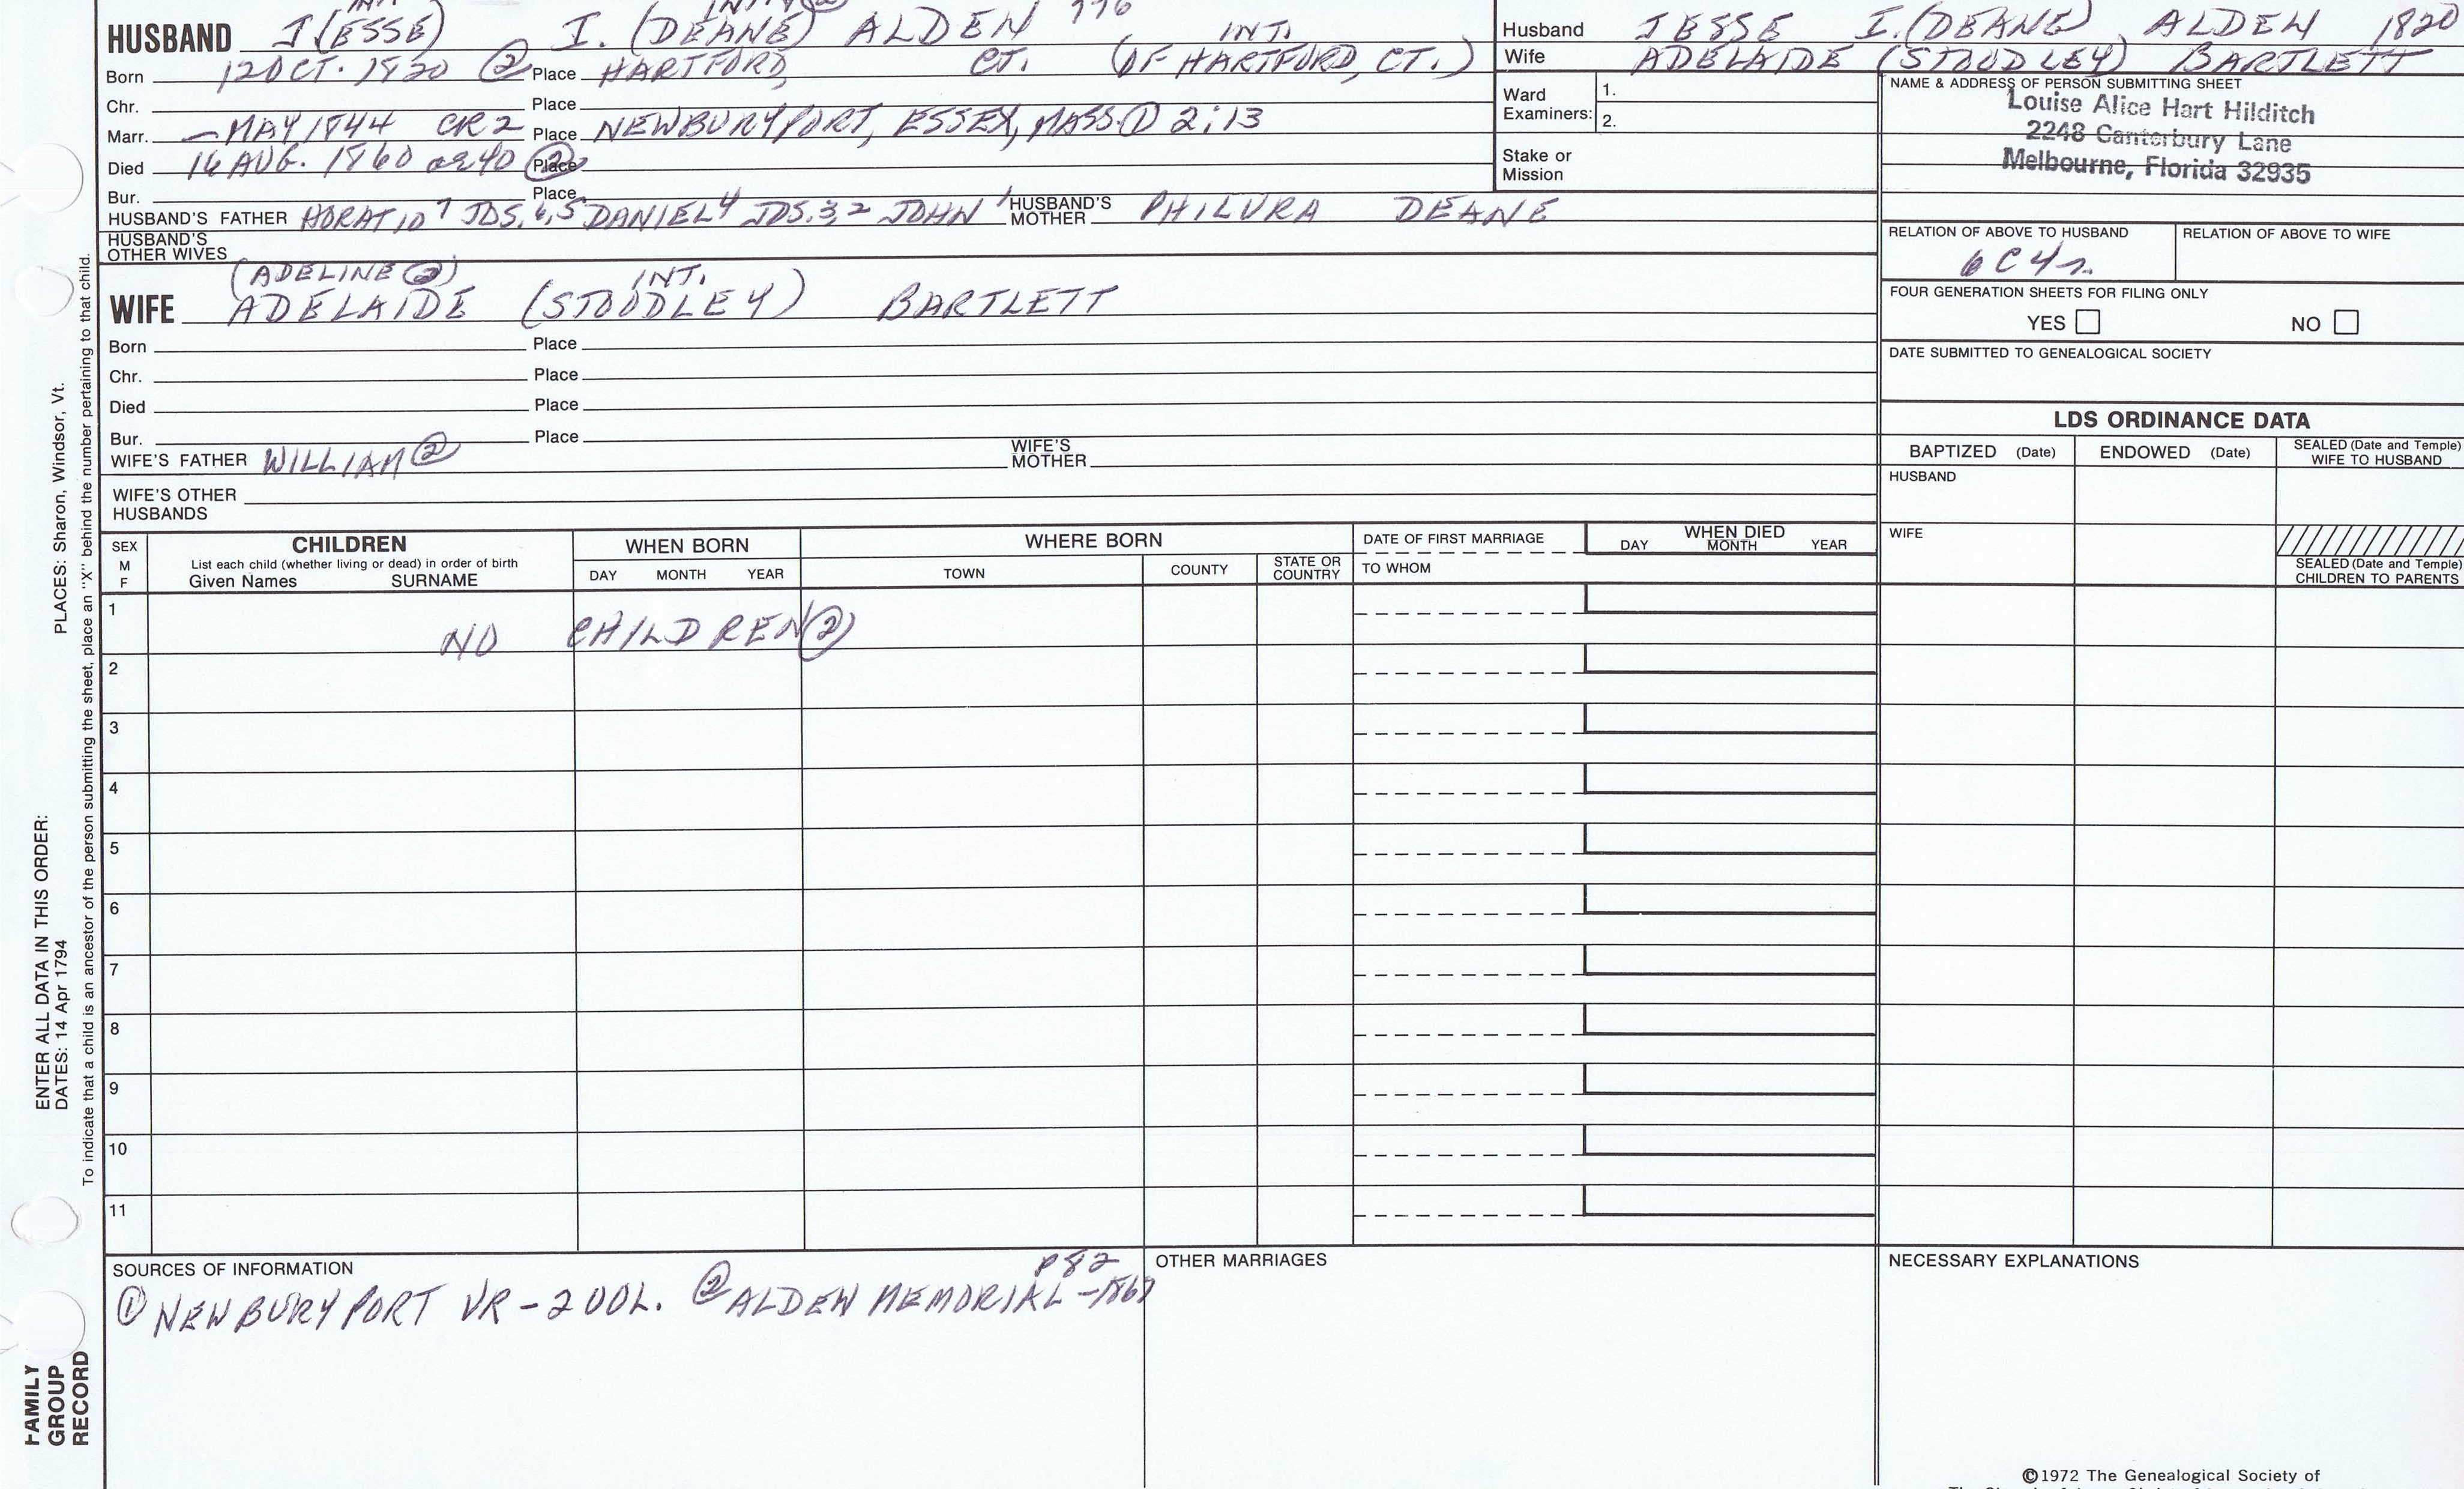 HUSBAND J(ESSE) I. (DEANE) ALDEN 776 INT.
Born 12 OCT. 1820 ② Place HARTFORD, CT. (OF HARTFORD, CT.)
Chr. Place
Marr. – MAY 1844 CR2 Place NEWBURYPORT, ESSEX, MASS. ① 2:13
Died 16 AUG. 1860 ae 40 ② Place
Bur. Place
HUSBAND'S FATHER HORATIO 7 JDS. 6,5 DANIEL 4 JDS. 3,2 JOHN 1 HUSBAND'S MOTHER PHILURA DEANE
HUSBAND'S OTHER WIVES
(ADELINE ②) INT.
WIFE ADELAIDE (STOODLEY) BARTLETT
Born Place
Chr. Place
Died Place
Bur. Place
WIFE'S FATHER WILLIAM ② WIFE'S MOTHER
WIFE'S OTHER HUSBANDS
Husband JESSE I. (DEANE) ALDEN 1820
Wife ADELAIDE (STOODLEY) BARTLETT
Ward Examiners: 1.
2.
Stake or Mission
NAME & ADDRESS OF PERSON SUBMITTING SHEET
Louise Alice Hart Hilditch
2248 Canterbury Lane
Melbourne, Florida 32935
RELATION OF ABOVE TO HUSBAND RELATION OF ABOVE TO WIFE
6C4r.
FOUR GENERATION SHEETS FOR FILING ONLY
YES NO
DATE SUBMITTED TO GENEALOGICAL SOCIETY
LDS ORDINANCE DATA
BAPTIZED (Date) ENDOWED (Date) SEALED (Date and Temple) WIFE TO HUSBAND
HUSBAND
WIFE
SEALED (Date and Temple) CHILDREN TO PARENTS
SEX M F
CHILDREN
List each child (whether living or dead) in order of birth
Given Names SURNAME
WHEN BORN
DAY MONTH YEAR
WHERE BORN
TOWN COUNTY STATE OR COUNTRY
DATE OF FIRST MARRIAGE
TO WHOM
WHEN DIED
DAY MONTH YEAR
1 NO CHILDREN ②
2
3
4
5
6
7
8
9
10
11
SOURCES OF INFORMATION
① NEWBURYPORT VR – 2 VOL. ② ALDEN MEMORIAL – 1867 P82
OTHER MARRIAGES
NECESSARY EXPLANATIONS
©1972 The Genealogical Society of
ENTER ALL DATA IN THIS ORDER:
DATES: 14 Apr 1794 PLACES: Sharon, Windsor, Vt.
To indicate that a child is an ancestor of the person submitting the sheet, place an "X" behind the number pertaining to that child.
FAMILY
GROUP
RECORD